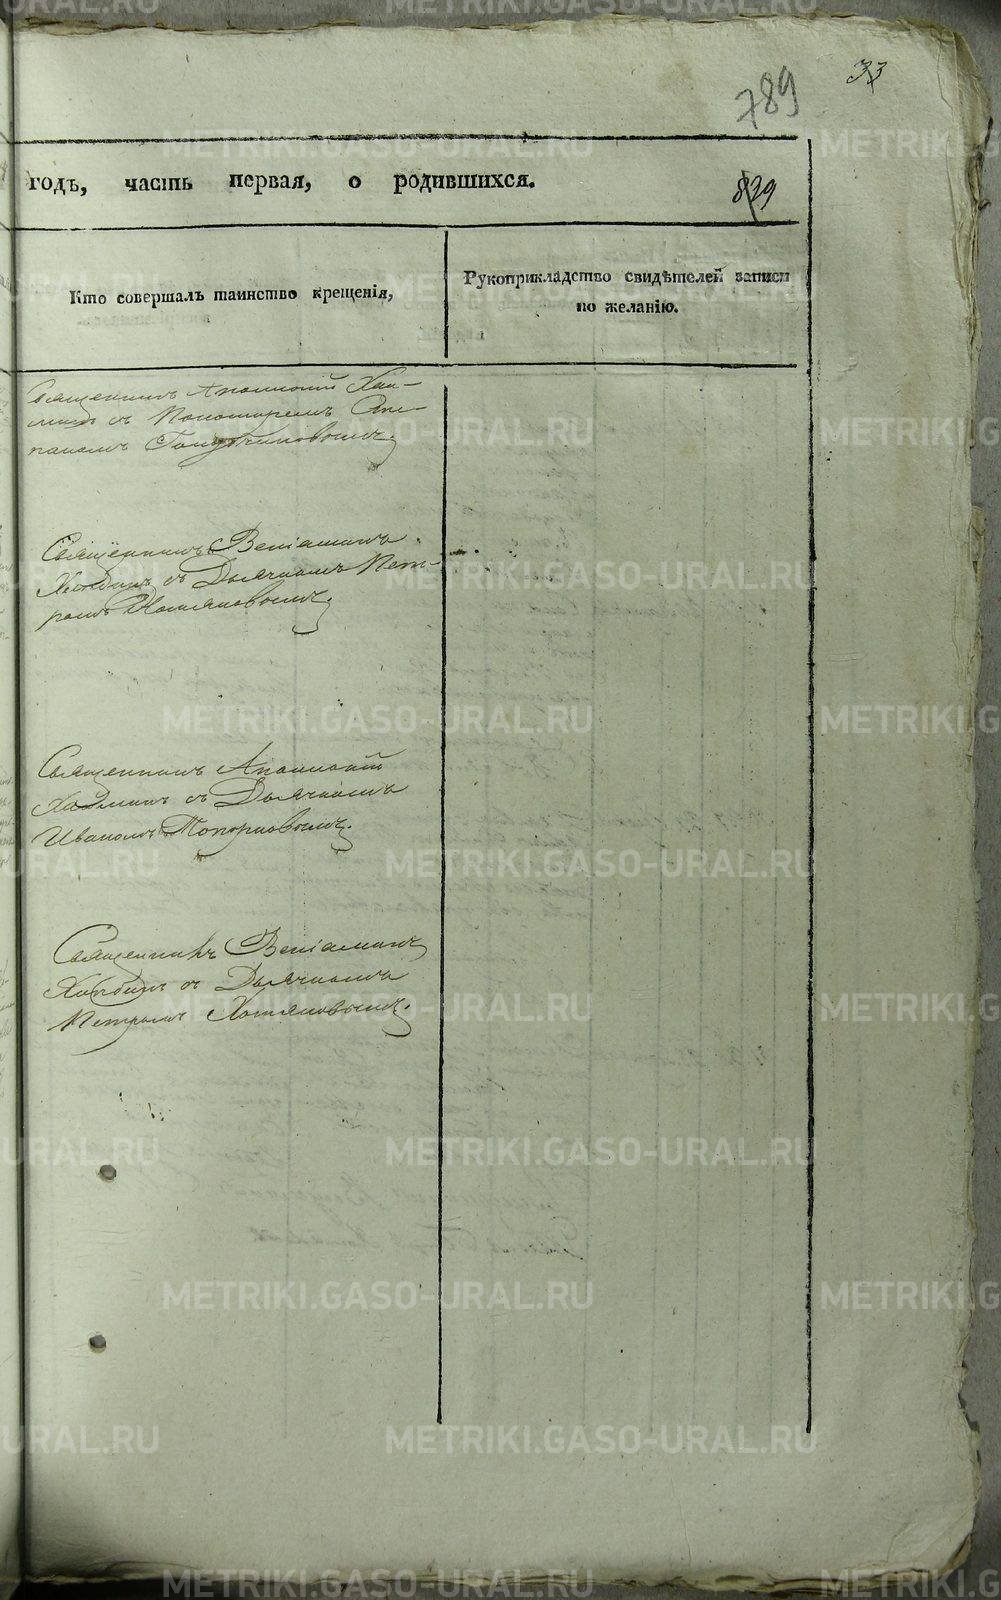 789
33
годъ, часть первая, о родившихся.
829
Кто совершалъ таинство крещенія,
Рукоприкладство свидѣтелей записи
по желанію.
Священникъ Аполлоній
съ Пономаремъ Сте-
паномъ
Священникъ Веніаминъ
съ Дьячкомъ Пет-
ромъ
Священникъ Аполлоній
съ Дьячкомъ
Иваномъ Топорковымъ.
Священникъ Веніаминъ
съ Дьячкомъ
Петромъ Хотяновымъ.
METRIKI.GASO-URAL.RU